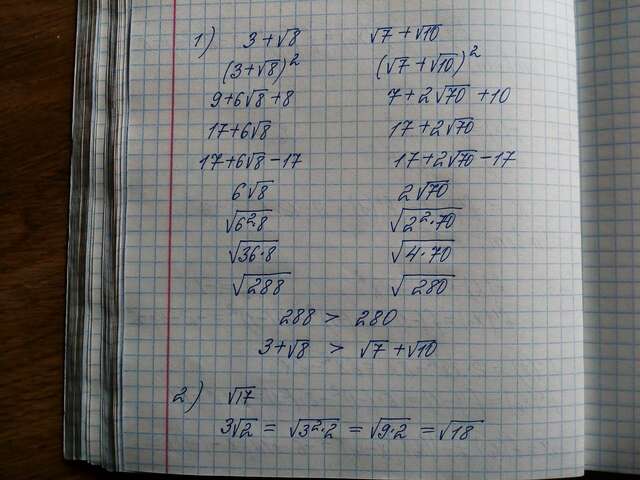 1) 3+√8 √7+√10
(3+√8)² (√7+√10)²
9+6√8+8 7+2√70+10
17+6√8 17+2√70
17+6√8-17 17+2√70-17
6√8 2√70
√6²·8 √2²·70
√36·8 √4·70
√288 √280
288 > 280
3+√8 > √7+√10
2) √17
3√2 = √3²·2 = √9·2 = √18